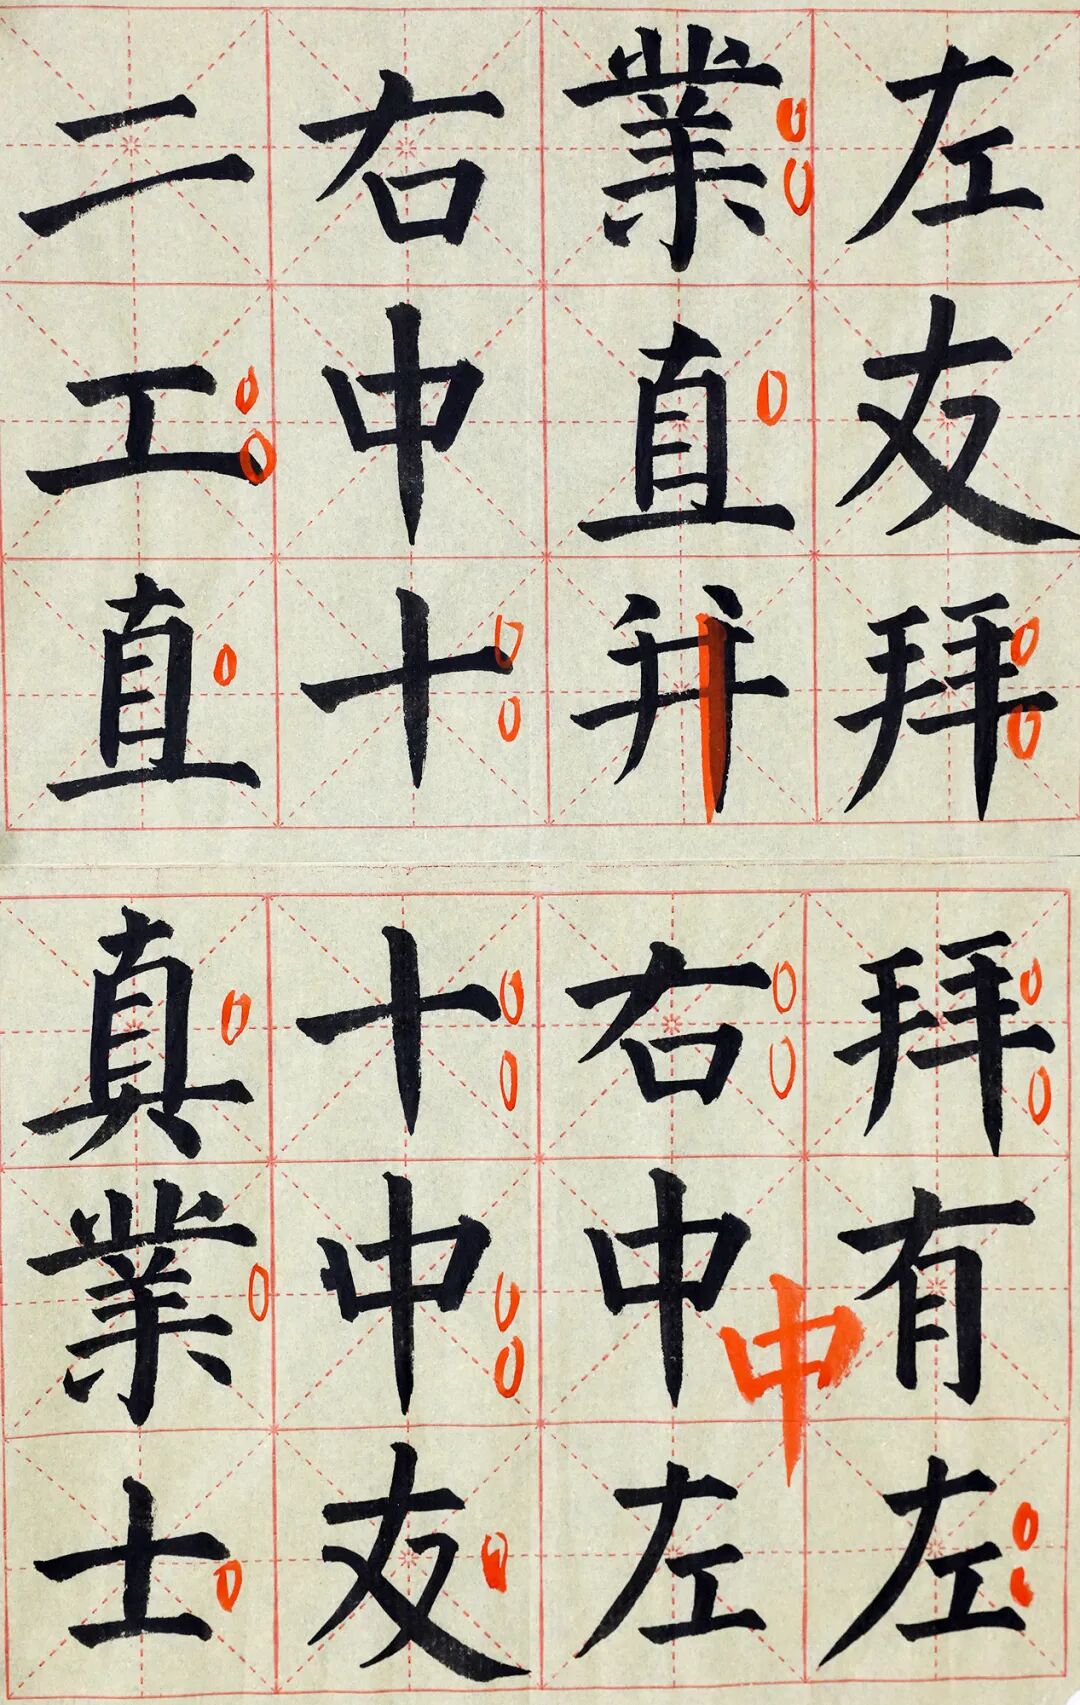 左友拜
業直并
右中十
二工直
拜有左
右中左
中
十中友
真業士